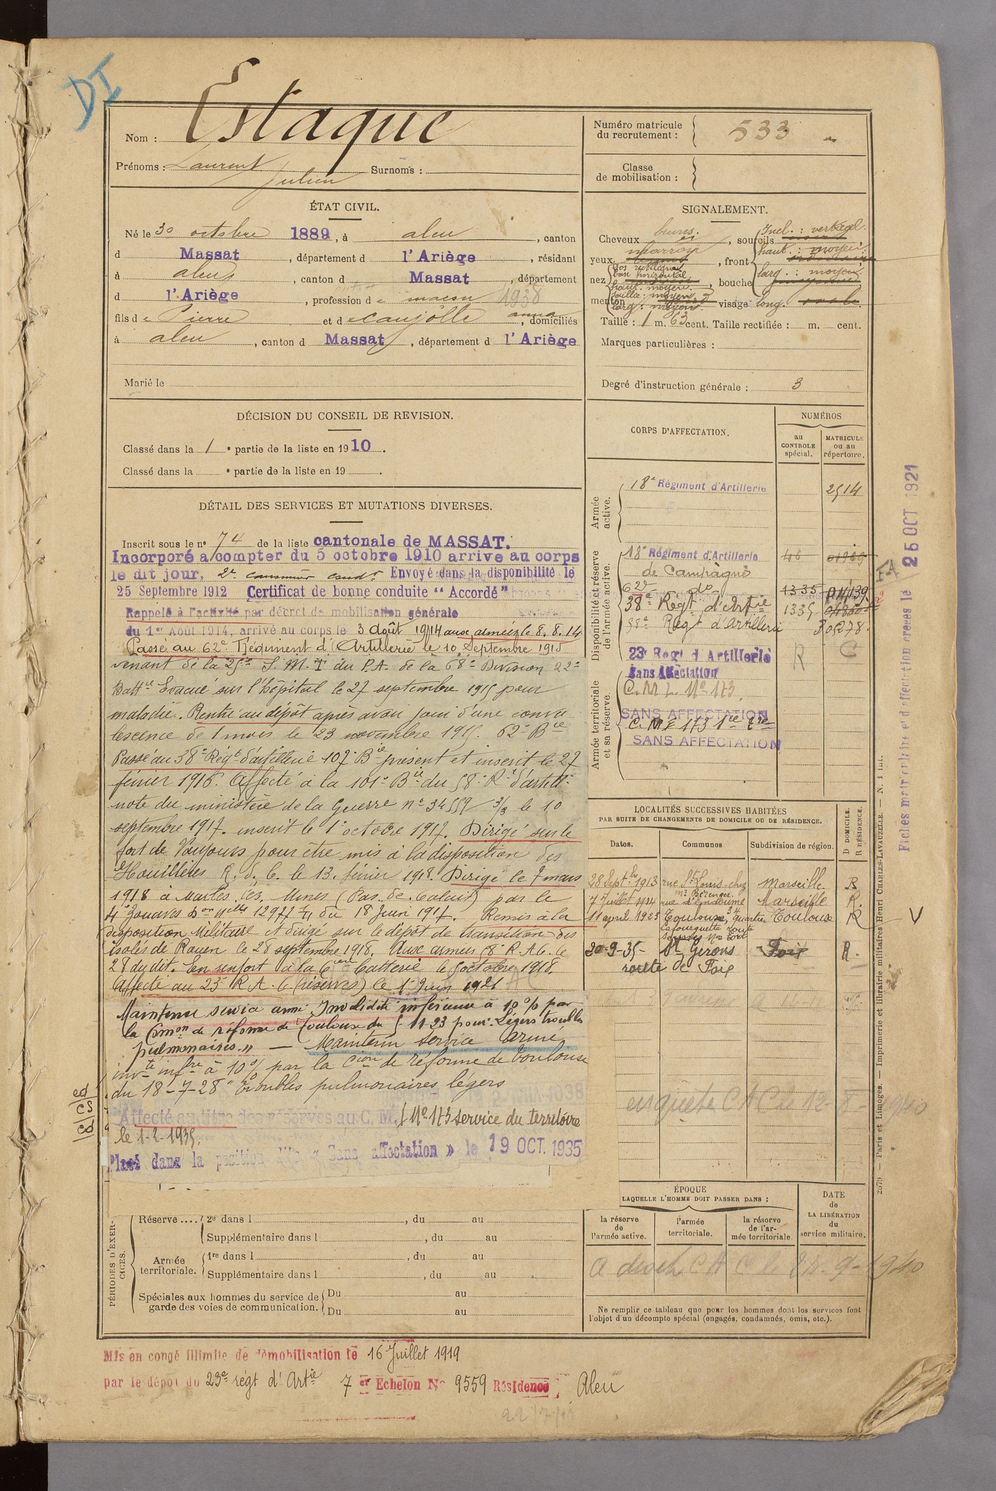 DI
Nom : Estaque
Prénoms : Laurent Surnoms :
Julien
Numéro matricule
du recrutement : 533
Classe
de mobilisation :
ÉTAT CIVIL.
Né le 30 octobre 1889, à aleu, canton
d Massat, département d l'Ariège, résidant
à aleu, canton d Massat, département
d l'Ariège, profession de maçon 1938
fils de Pierre et de caujolle anna, domiciliés
à aleu, canton d Massat, département d l'Ariège
Marié le
SIGNALEMENT.
bruns
Cheveux, sourcils Incl. : vertical
yeux marron, front haut. : moyen
nez Dos rectiligne base horizontale, bouche larg. : moyen
haut. : moyenne
saillie : moyenne
menton larg. : moyenne visage long.
Taille : 1 m. 63 cent. Taille rectifiée : m. cent.
Marques particulières :
Degré d'instruction générale : 3
DÉCISION DU CONSEIL DE REVISION.
Classé dans la 1e partie de la liste en 1910.
Classé dans la e partie de la liste en 19 .
DÉTAIL DES SERVICES ET MUTATIONS DIVERSES.
Inscrit sous le no 74 de la liste cantonale de MASSAT.
Incorporé a compter du 5 octobre 1910 arrive au corps
le dit jour, 2e canonnier cond.r Envoyé dans la disponibilité le
25 Septembre 1912 Certificat de bonne conduite "Accordé"
Rappelé à l'activité par décret de mobilisation générale
du 1er Août 1914, arrivé au corps le 3 août 1914 aux armées le 8.8.14
Passé au 62e Régiment d'Artillerie le 10 Septembre 1915
venant de la 25e S.M.I du P.A. de la 68e Division 22e
Batt.ie Evacué sur l'hôpital le 27 septembre 1915 pour
maladie. Rentré au dépôt après avoir joui d'une conva
lescence de 1 mois le 23 novembre 1915. 62e Bie
Passé au 38e Régt d'artillerie 107e Bie présent et inscrit le 27
février 1916. Affecté à la 101e Bie du 58e R.t d'artill.
note du ministère de la Guerre no 34559 3/3 le 10
septembre 1917. inscrit le 1er octobre 1917. Dirigé sur le
fort de Vaujours pour être mis à la disposition des
Houillières R.d.C. le 13 février 1918. Dirigé le 7 mars
1918 à Marles les Mines (Pas de Calais) par le
4e Zouaves Don Mlle 12977 du 18 Juin 1917. Remis à la
disposition Militaire et dirigé sur le dépôt de transition des
isolés de Rouen le 28 septembre 1918. Aux armées 18e R.A.C. le
28 du dit. En renfort à la 6eme batterie le 8 octobre 1918.
Affecté au 23e R.A.C. (réserves) le 1er Juin 1921
Maintenu service armé Invalidité inférieure à 10% par
la Comon de réforme de Toulouse du 11-23 pour "Légers troubles
pulmonaires" — Maintenu Service Armé
invte infre à 10% par la Cion de réforme de Toulouse
du 18-7-28 "Troubles pulmonaires légers
Affecté au titre des réserves au C.M. f No 173 service du territoire
le 1-2-1935.
Placé dans la position dite « Sans affectation » le 19 OCT. 1935
CORPS D'AFFECTATION.
NUMÉROS
au
CONTROLE
spécial.
MATRICULE
ou au
répertoire.
Armée
active.
18e Régiment d'Artillerie 2514
Disponibilité et réserve
de l'armée active.
18e Régiment d'Artillerie
de Campagne
62e do 1335
38e Regt d'Artie 1335
58e Regt d'Artillerie 30278.
23e Regt d'Artillerie R C
Sans Affectation
Armée territoriale
et sa réserve.
C.M. f. No 173.
SANS AFFECTATION
C.M.f 173 1re Zre
SANS AFFECTATION
Fiches matriculaire et d'affectation créées le 25 OCT 1921
LOCALITÉS SUCCESSIVES HABITÉES
PAR SUITE DE CHANGEMENTS DE DOMICILE OU DE RÉSIDENCE.
Dates. Communes Subdivision de région. D DOMICILE. R RÉSIDENCE.
28 Septbre 1913 rue St Louis chez Marseille R
7 Juillet 1914 rue d'Endoume Marseille R.
11 april 1923 Toulouse, quartier Toulouse R
Lafourguette route
30-9-35- St Girons Foix R.
route de Foix
V
enquête CAC de 12-8-1940
ÉPOQUE
LAQUELLE L'HOMME DOIT PASSER DANS :
DATE
de
LA LIBÉRATION
du
service militaire.
la réserve
de
l'armée active.
l'armée
territoriale.
la réserve
de l'ar-
mée territoriale.
Ne remplir ce tableau que pour les hommes dont les services font
l'objet d'un décompte spécial (engagés, condamnés, omis, etc.).
PÉRIODES D'EXER-
CICES.
Réserve.... 2e dans l , du au
Supplémentaire dans l , du au
Armée
territoriale.
1re dans l , du au
Supplémentaire dans l , du au
Spéciales aux hommes du service de
garde des voies de communication.
Du au
Du au
Paris et Limoges. — Imprimerie et librairie militaires Henri CHARLES-LAVAUZELLE.
Mis en congé illimité de démobilisation le 16 Juillet 1919
par le dépôt du 23e régt d'Artie 7er Echelon No 9559 Résidence Aleu
22/7/19